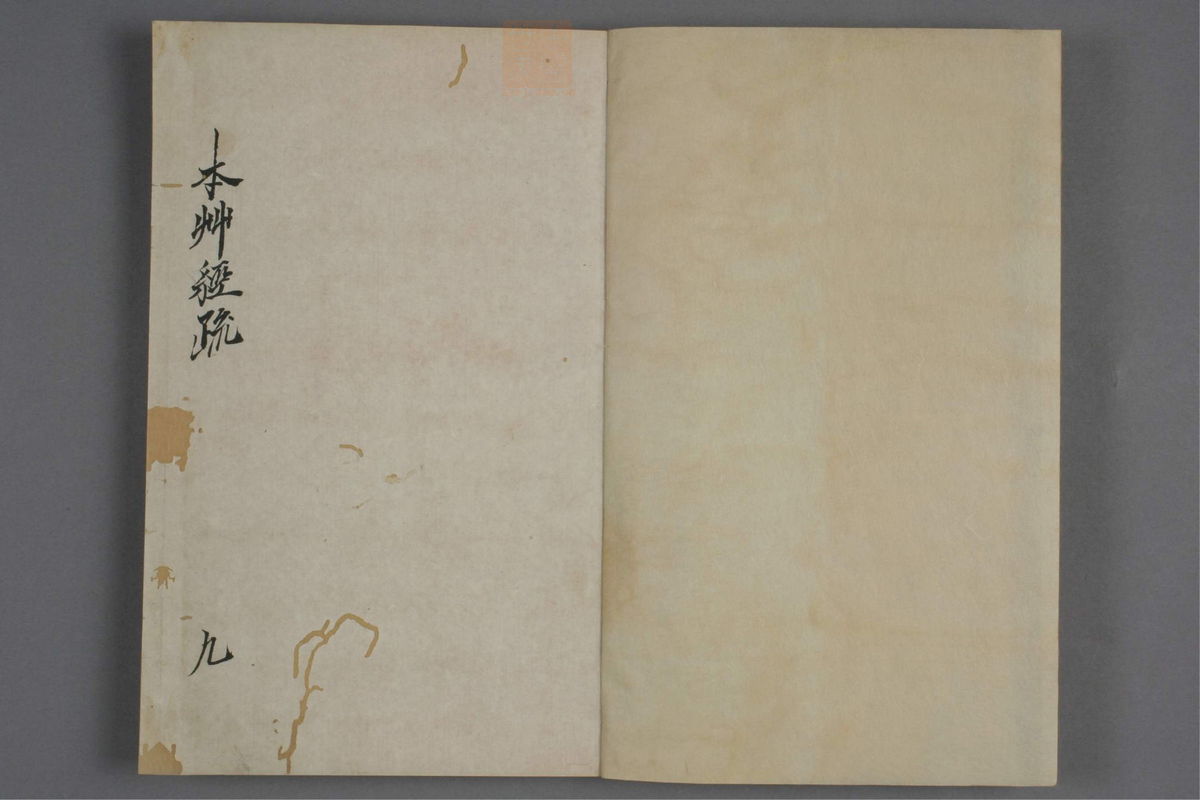 本艸經疏
九